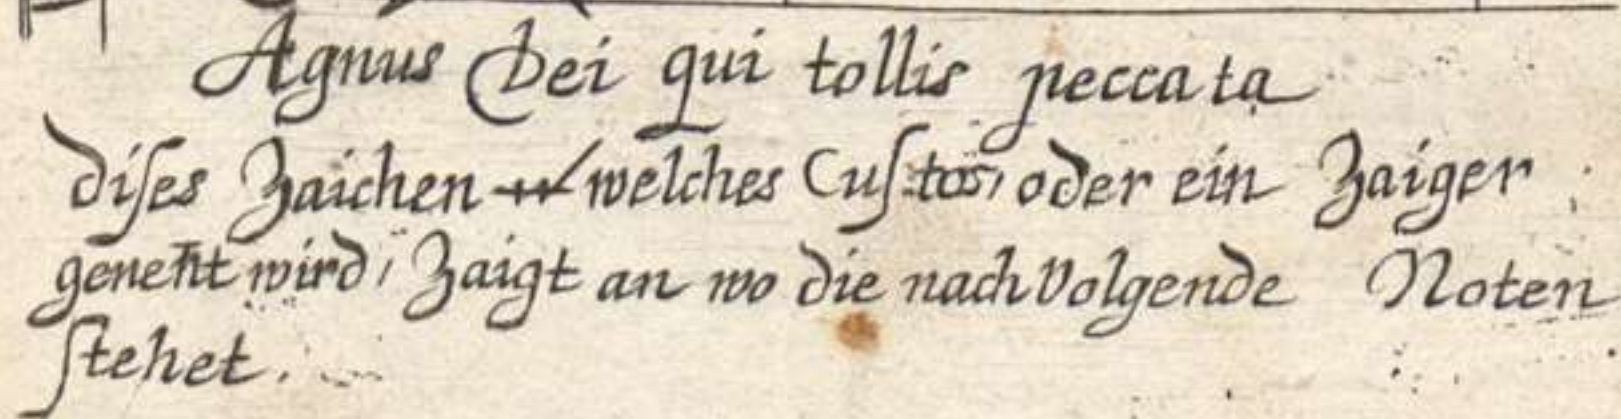 Agnus Dei qui tollis peccata
diſes Zaichen welches Cuſtos, oder ein Zaiger
geneñt wird, Zaigt an wo die nachVolgende Noten
ſtehet.